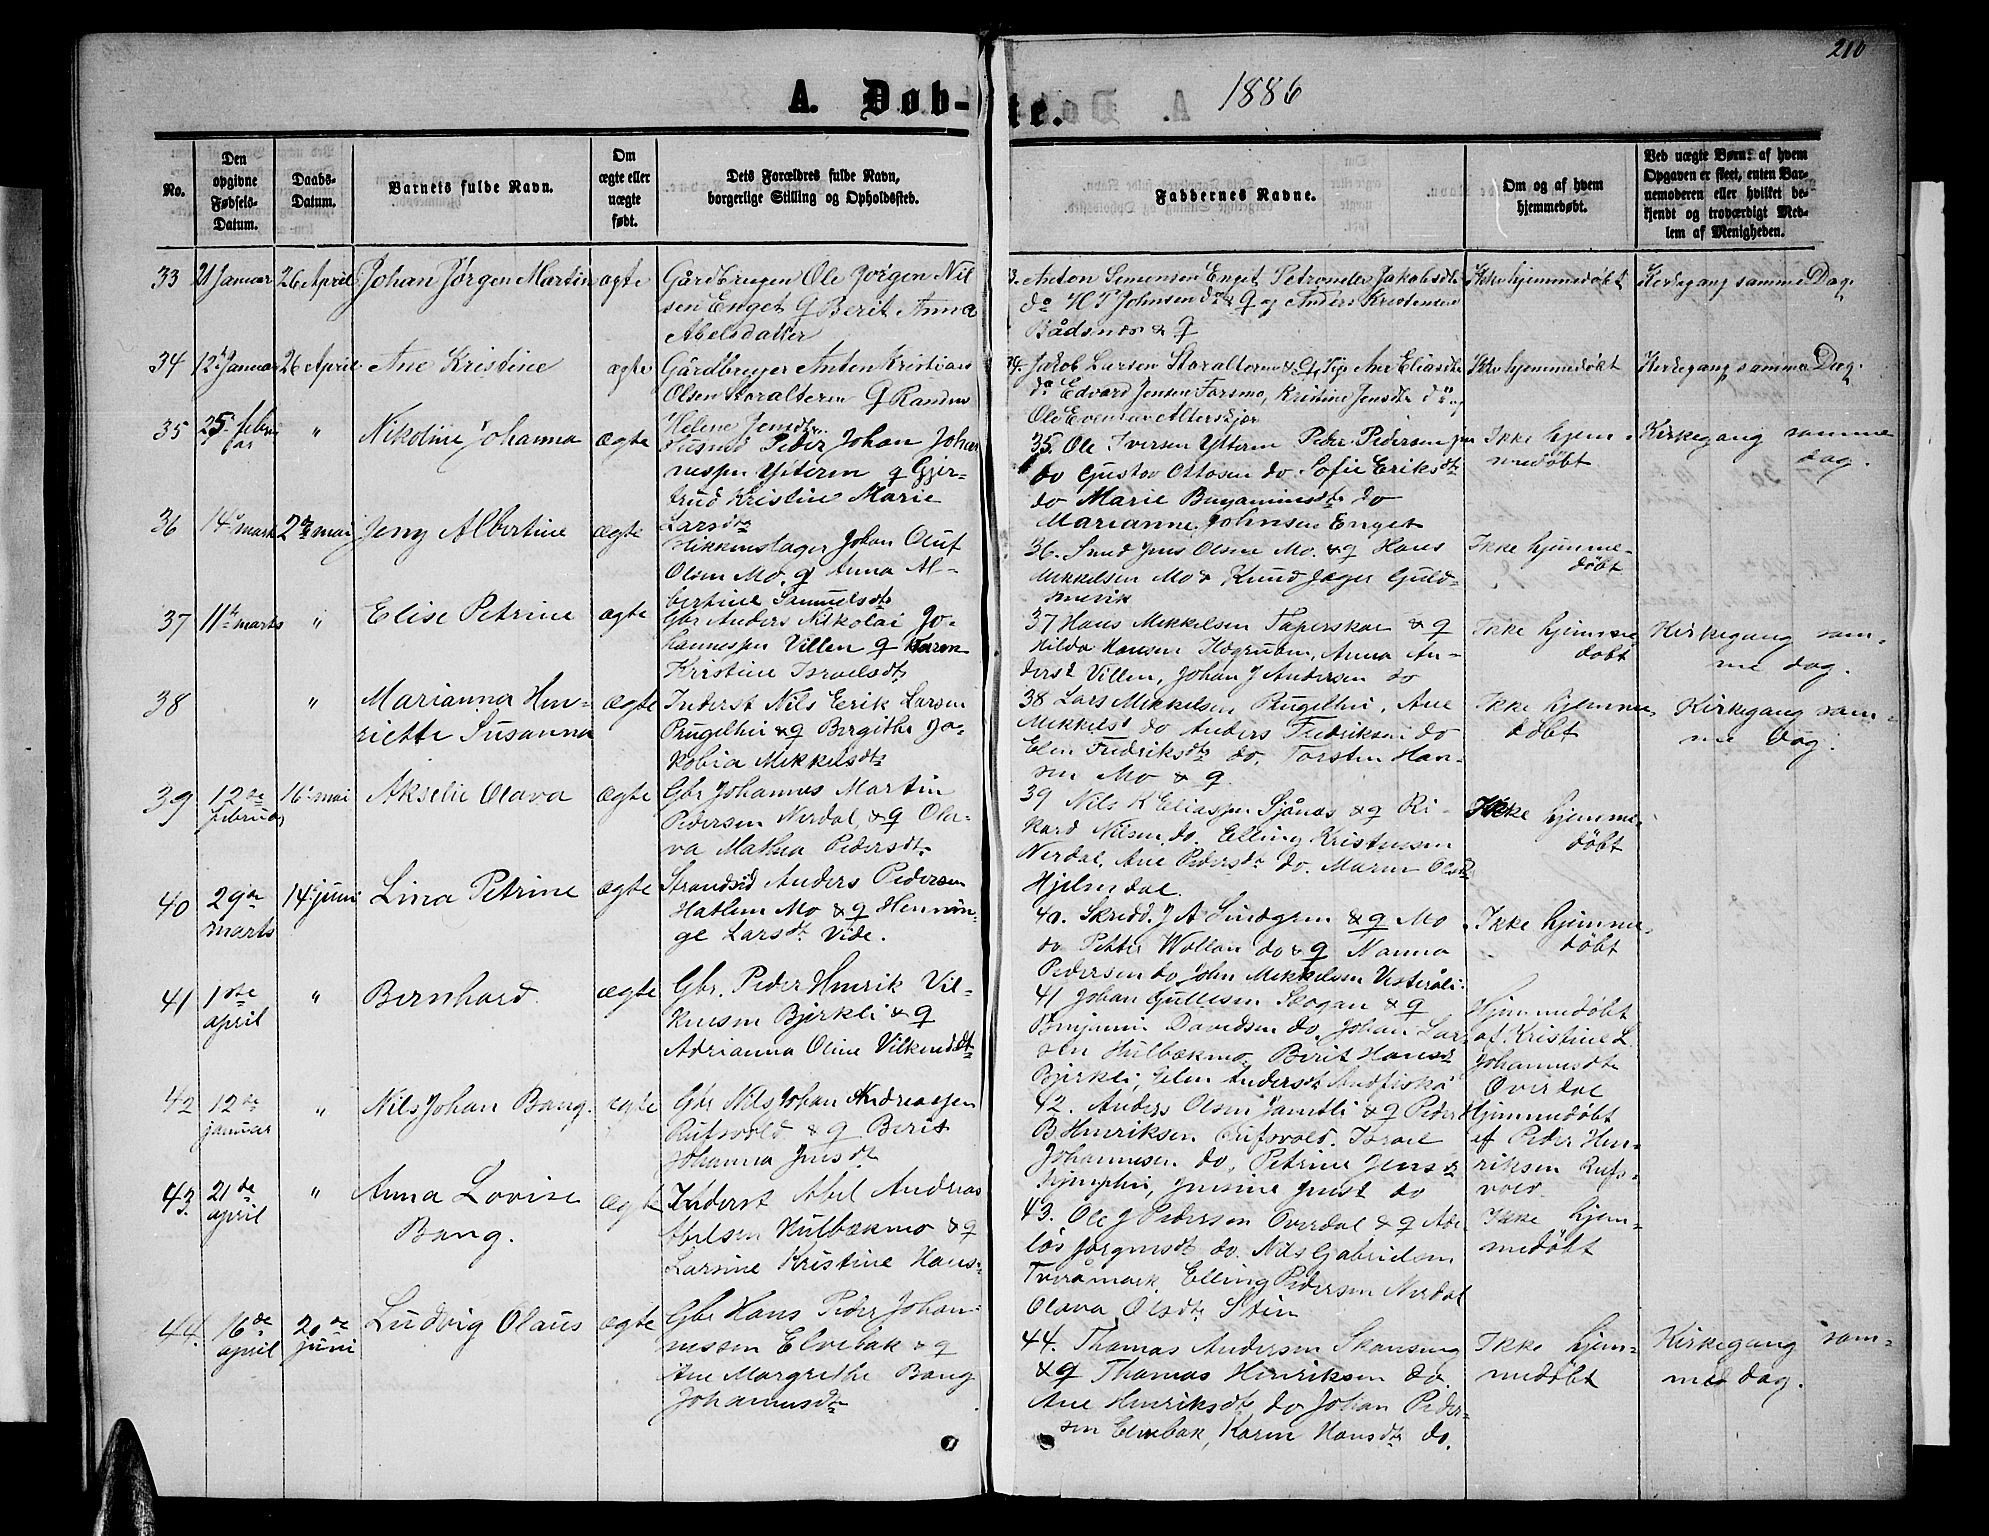 210
A. Døb-te.
1886
No.
Den opgivne Fødsels-Datum.
Daabs-Datum.
Barnets fulde Navn.
Om ægte eller uægte født.
Dets Forældres fulde Navn, borgerlige Stilling og Opholdssted.
Faddernes Navne.
Om og af hvem hjemmedøbt.
Ved uægte Børn: af hvem Opgaven er skeet, enten Barnemoderen eller hvilket bekjendt og troværdigt Medlem af Menigheden.
33 21 Januar 26 April Johan Jørgen Martin ægte
Gårdbruger Ole Jørgen Nil
sen Enget & Berit Anna
Abelsdatter
Anton Simonsen Enget
do H P Johnsen do & q og Anders Kristensen
Bådsnes & q
Ikke hjemmedøbt
Kirkegang samme Dag.
34 12te Januar 26 April Ane Kristine ægte
Gårdbruger Anton Kristian
Olsen Storalteren q Randin
Helene Jensdtr.
34. Jakob Larsen Storalteren & q, Pige Ane Eliasdtr
do Edvard Jensen Forsmo, Kristine Jensdtr do og
Ole Evensen Alterskjær
Ikke hjemmedøbt
Kirkegang samme Dag.
35 25 febru
ar " Nikoline Johanna ægte
Husmd Peder Johan Johan
nessen Ytteren q Gjer-
trud Kristine Marie
Larsdtr
35. Ole Iversen Ytteren Peder Pedersen
do Gustav Ottosen do. Sofie Eriksdtr
do Marie Benjaminsdtr do
Marianne Johnsen Enget
Ikke hjem-
medøbt
Kirkegang samme
dag.
36 14de marts 2den mai Jeny Albertine ægte
Blikkenslager Johan Oluf
Olsen Mo. q Anna Al-
bertine Samuelsdtr
36. Smed Jens Olsen Mo. & q Hans
Mikkelsen Mo & Knud Jager Guld-
smevik
Ikke hjemme-
døbt
37 11te marts " Elise Petrine ægte
Gbr Anders Nikolai Jo-
hannessen Villen q Karen
Kristine Israelsdtr
37 Hans Mikkelsen Taperskar & q
Hilda Hansen Hogruam, Anna An-
dersd Villen, Johan J Andersen do
Ikke hjemme
døbt
Kirkegang sam-
me dag.
38 " Marianna Hen-
riette Susanna ægte
Inderst Nils Erik Larsen
Prugelhei & q Bergithe Ja-
kobia Mikkelsdtr
38 Lars Mikkelsen Prugelhei. Ane
Mikkelsd do Anders Fredriksen do
Elen Fredriksdtr do, Torsten Han-
sen Mo & q.
Ikke hjemme
døbt
Kirkegang sam-
me dag.
39 12te
februar 16 mai Akselie Olava ægte
Gbr Johannes Martin
Pedersen Nerdal, & q Ola-
va Mathea Pedersdtr
39 Nils K Eliassen Sjånes & q Ri-
kard Nilsen do. Elling Kristensen
Nerdal. Ane Pedersdtr do. Maren Olsd
Hjelmedal.
Ikke hjemme-
døbt
40 29de
marts 14 juni Lina Petrine ægte
Strandsid Anders Pedersen
Hatlem Mo & q Hennin-
ge Larsdtr Vide.
40. Skredd. J A Lindgren & q Mo
do Petter Wollan do & q Nanna
Pedersen do John Mikkelsen Vesterali.
Ikke hjemme
døbt
41 1ste
april " Bernhard. ægte
Gbr. Peder Henrik Vil-
kensen Bjerkli & q
Adrianna Oline Vilkensdtr
41 Johan Gullesen Skogan & q
Benjamin Davidsen do. Johan Lar-
sen Hulbækmo, Berit Hansd
Bjerkli, Elen Andersdt Andfiskå
Hjemmedøbt
af Kristine L.
Johannesdtr
Overdal
42 12te
januar " Nils Johan Bang. ægte
Gbr Nils Johan Andreassen
Rufsvold & q Berit
Johanna Jensdtr
42. Anders Olsen Jamtli & q Peder
B Henriksen Rufsvold. Israel
Johannesen do, Petrine Jensd
do
Hjemmedøbt
af Peder Hen-
riksen Rufs-
vold.
43. 21de
april " Anna Lovise
Bang. ægte
Inderst Abel Andreas
Abelsen Hulbækmo & q
Larsine Kristine Hans-
43. Ole J Pedersen Overdal & q Ade
lus Jørgensdtr do. Nils Gabrielsen
Tveråmoen. Elling Pedersen Nerdal
Olava Olsdtr Stein
Ikke hjem-
medøbt
44. 16de
april 20de
juni Ludvig Olaus ægte
Gbr Hans Peder Johan-
nessen Elvebak & q
Ane Margrethe Bang
Johannesdtr
44. Thomas Andersen Skansen
& q Thomas Henriksen do.
Ane Henriksdtr do Johan Peder-
sen Elvebak, Karen Hansdtr do.
Ikke hjem-
medøbt
Kirkegang sam-
me dag.